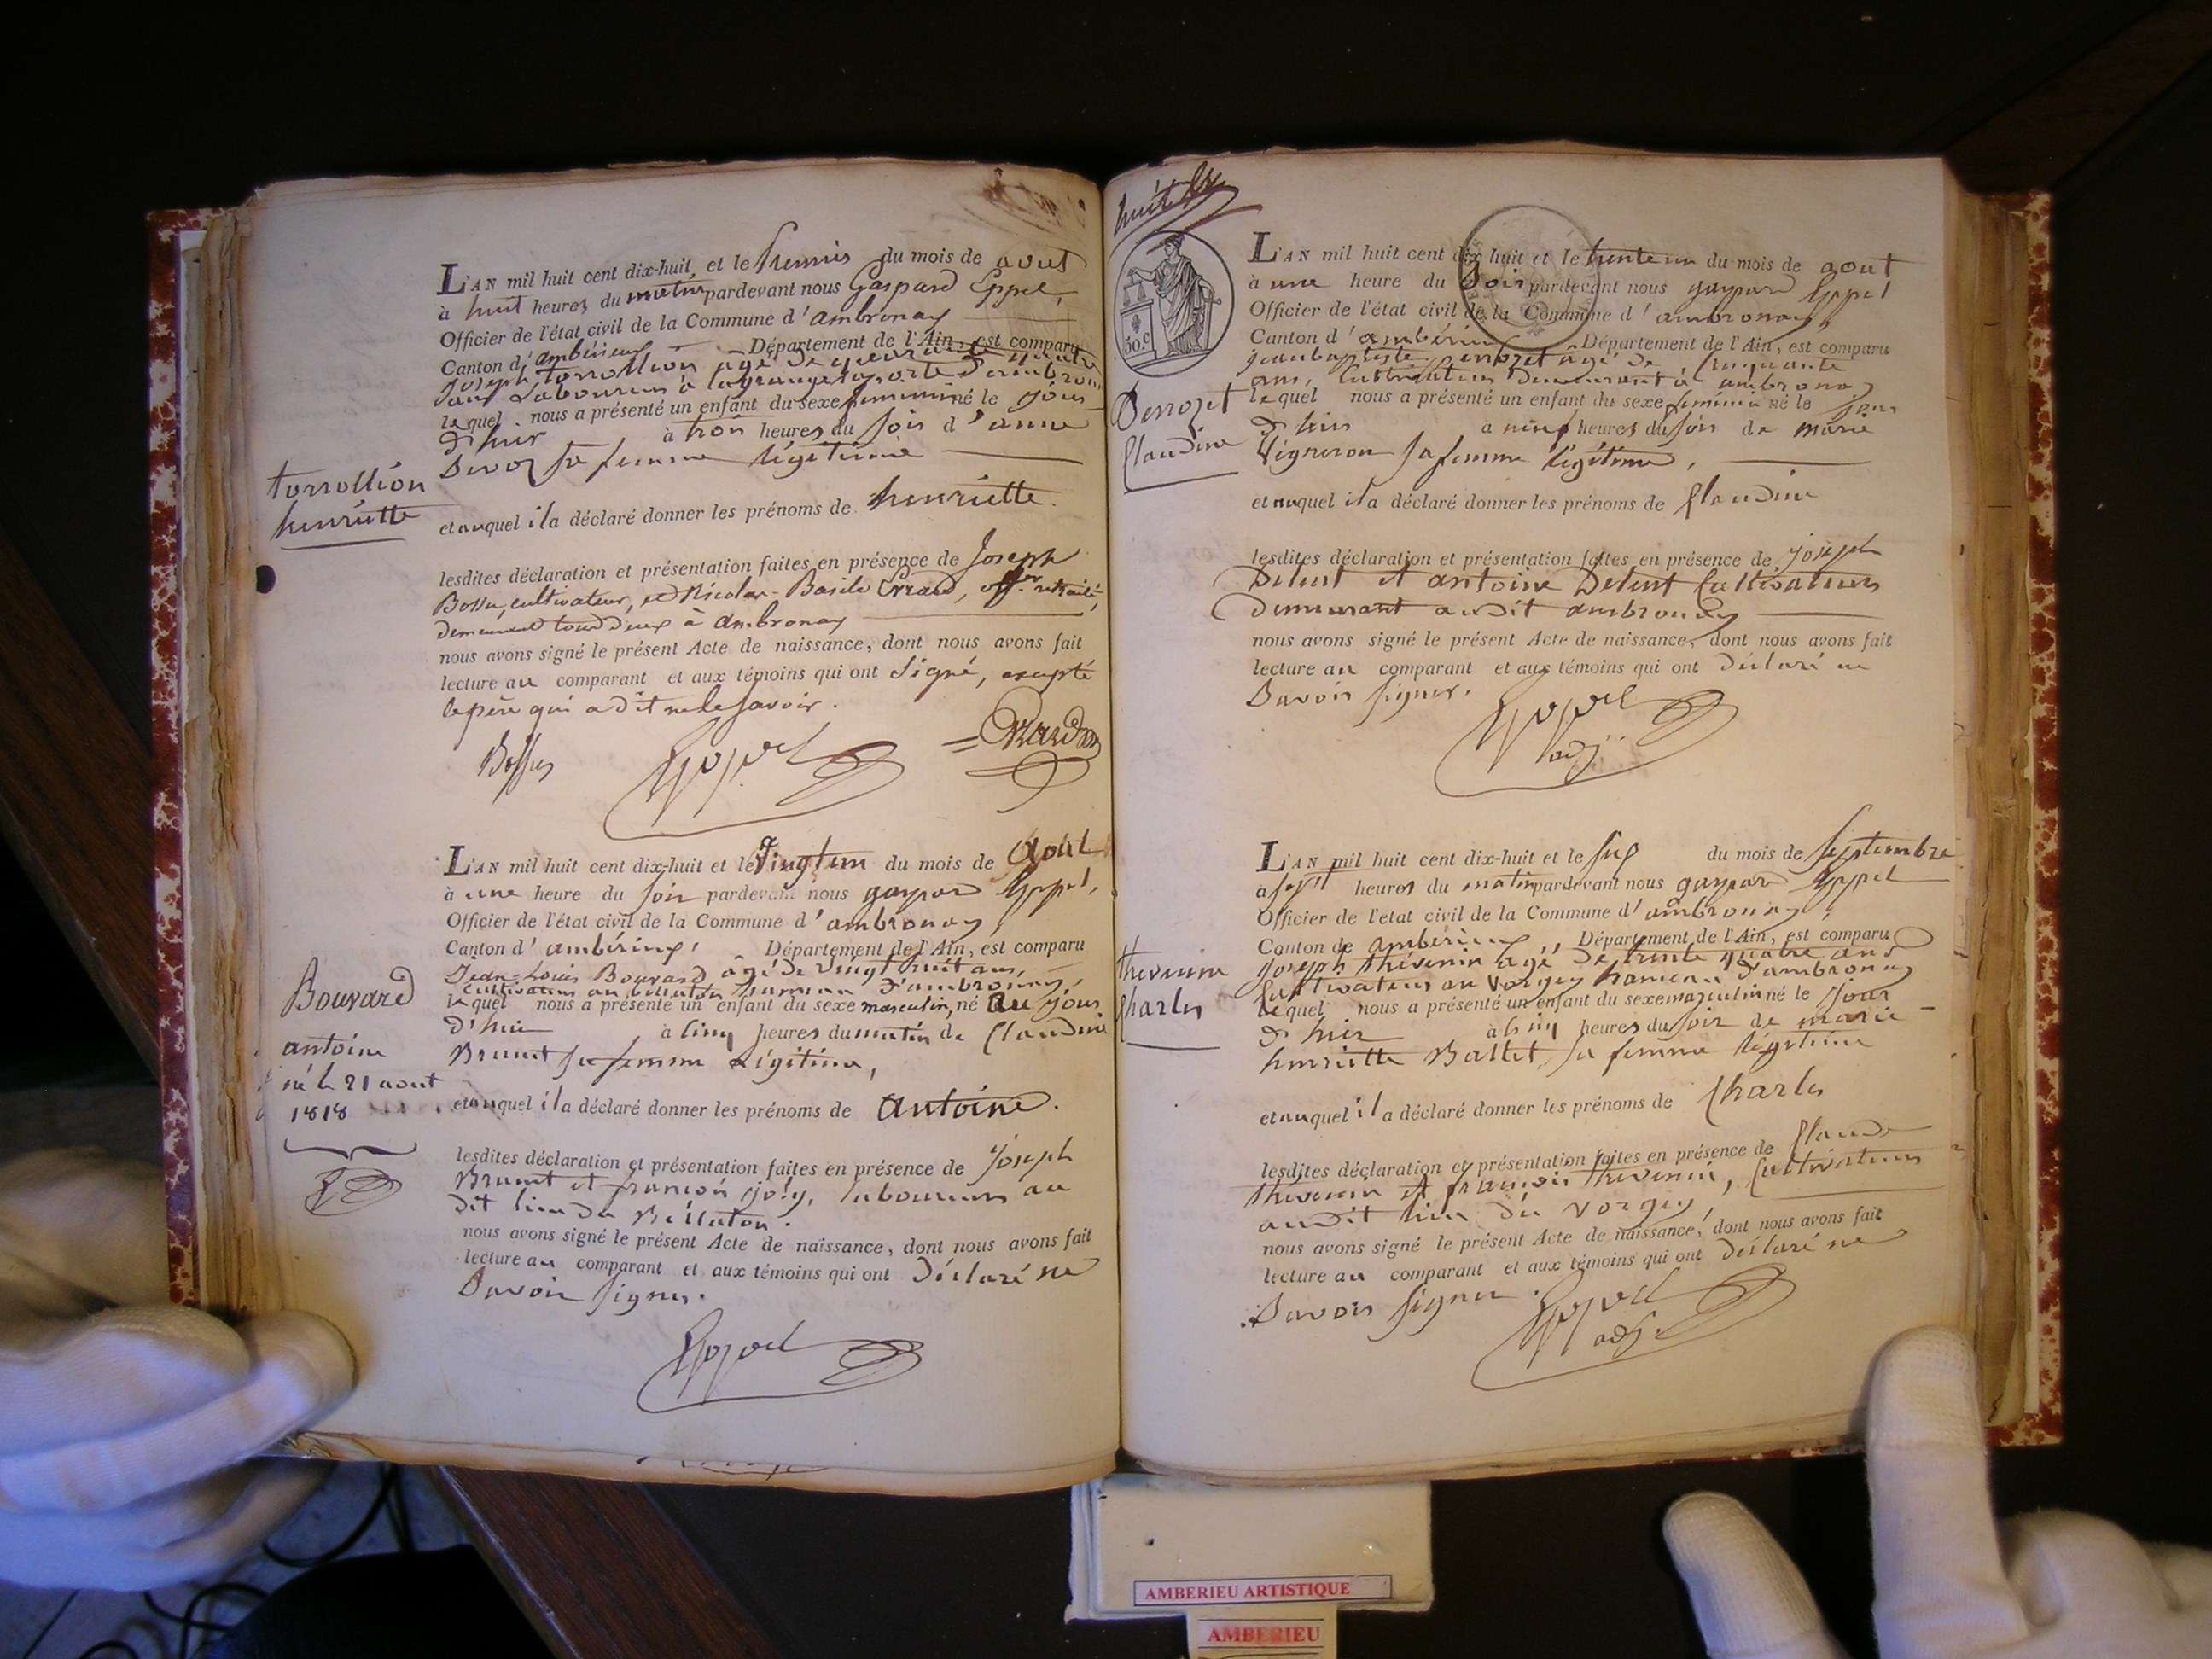 L'AN mil huit cent dix-huit, et le premier du mois de aout
à huit heures du matin pardevant nous Gaspard Eppel,
Officier de l'état civil de la Commune d'ambronay
Canton d'ambérieux Département de l'Ain, est comparu
Joseph torrollion agé de quarante quatre
ans Laboureur à la grange la porte d'ambronay
lequel nous a présenté un enfant du sexe feminin né le jour
d'hier à trois heures du soir d'anne
sa femme légitime
torrollion
henriette
et auquel il a déclaré donner les prénoms de henriette.
lesdites déclaration et présentation faites en présence de Joseph
Bossu, cultivateur, et Nicolas-Basile Evrard, offer. retraité,
demeurant tous deux à ambronay
nous avons signé le présent Acte de naissance, dont nous avons fait
lecture au comparant et aux témoins qui ont signé, excepté
le père qui a dit ne le savoir.
Bossu Eppel Evrard
L'AN mil huit cent dix-huit et le vingt un du mois de Août
à une heure du soir pardevant nous gaspard Eppel,
Officier de l'état civil de la Commune d'ambronay,
Canton d'ambérieux, Département de l'Ain, est comparu
Jean-Louis Bouvard âgé de vingt huit ans,
cultivateur au bellaton hameau d'ambronay,
lequel nous a présenté un enfant du sexe masculin, né au jour
d'hier à cinq heures du matin de Claudine
Brunet sa femme Légitime,
Bouvard
antoine
né le 21 aout
1818
et auquel il a déclaré donner les prénoms de antoine.
lesdites déclaration et présentation faites en présence de Joseph
Brunet et françois joly, laboureurs au
dit lieu du Bellaton.
nous avons signé le présent Acte de naissance, dont nous avons fait
lecture au comparant et aux témoins qui ont déclaré ne
Savoir signer.
Eppel
huit
50.c
L'AN mil huit cent dix huit et le trente un du mois de aout
à une heure du soir pardevant nous gaspard Eppel
Officier de l'état civil de la Commune d'ambronay,
Canton d'ambérieux Département de l'Ain, est comparu
jean baptiste âgé de Cinquante
ans, Cultivateur Demeurant à ambronay
lequel nous a présenté un enfant du sexe féminin né le jour
d'hier à neuf heures du soir de marie
Vigneron sa femme légitime,
Claudine
et auquel il a déclaré donner les prénoms de Claudine
lesdites déclaration et présentation faites en présence de joseph
et antoine Cultivateurs
demeurant audit ambronay
nous avons signé le présent Acte de naissance, dont nous avons fait
lecture au comparant et aux témoins qui ont déclaré ne
Savoir signer.
Eppel
adj.
L'AN mil huit cent dix-huit et le six du mois de septembre
à sept heures du matin pardevant nous gaspard Eppel
Officier de l'état civil de la Commune d'ambronay,
Canton de ambérieux, Département de l'Ain, est comparu
joseph thévenin agé de trente quatre ans
Cultivateur au Vorgey hameau d'ambronay
lequel nous a présenté un enfant du sexe masculin né le jour
d'hier à cinq heures du soir de marie
henriette Ballet, sa femme légitime
thevenin
Charles
et auquel il a déclaré donner les prénoms de Charles
lesdites déclaration et présentation faites en présence de Claude
thevenin et françois thevenin, Cultivateurs
audit lieu du Vorgey,
nous avons signé le présent Acte de naissance, dont nous avons fait
lecture au comparant et aux témoins qui ont déclaré ne
Savoir signer.
Eppel
adj.
AMBERIEU ARTISTIQUE
AMBERIEU